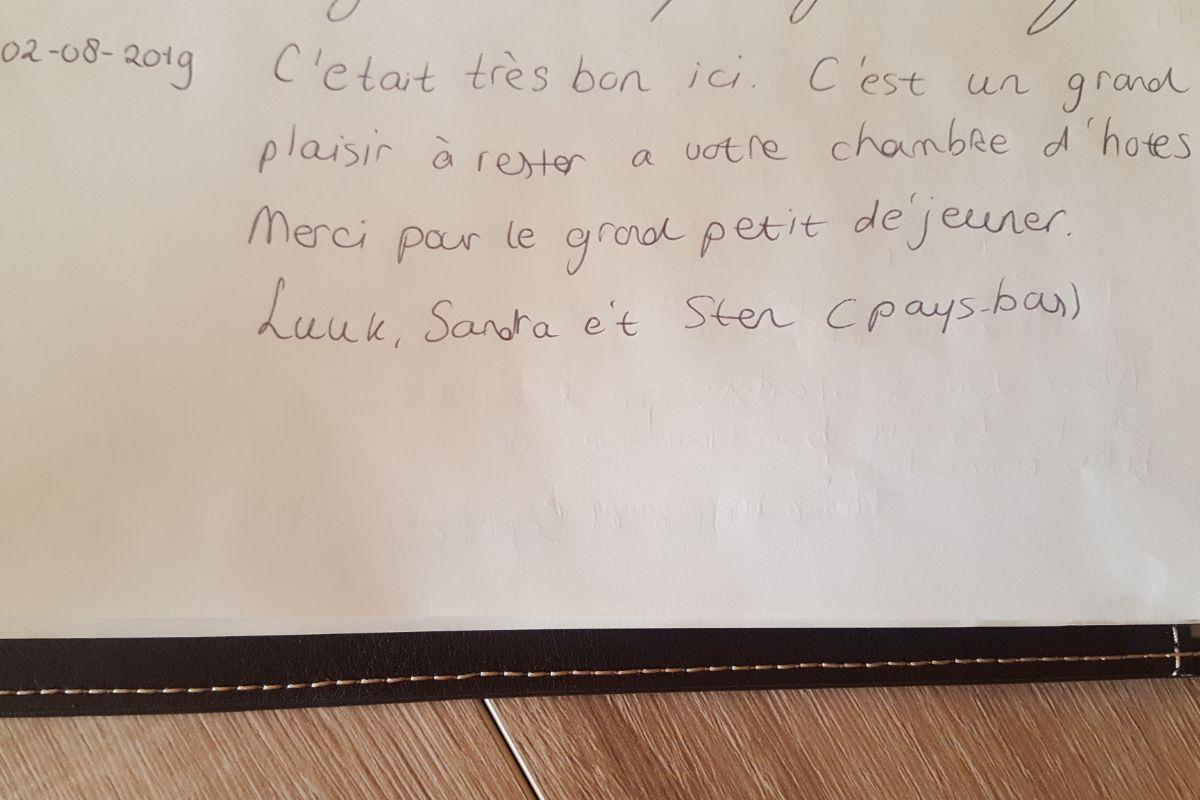 02-08-2019 C'etait très bon ici. C'est un grand
plaisir à rester a votre chambre d'hotes
Merci pour le grand petit dé'jeuner.
Luuk, Sandra ét Sten (pays-bas)